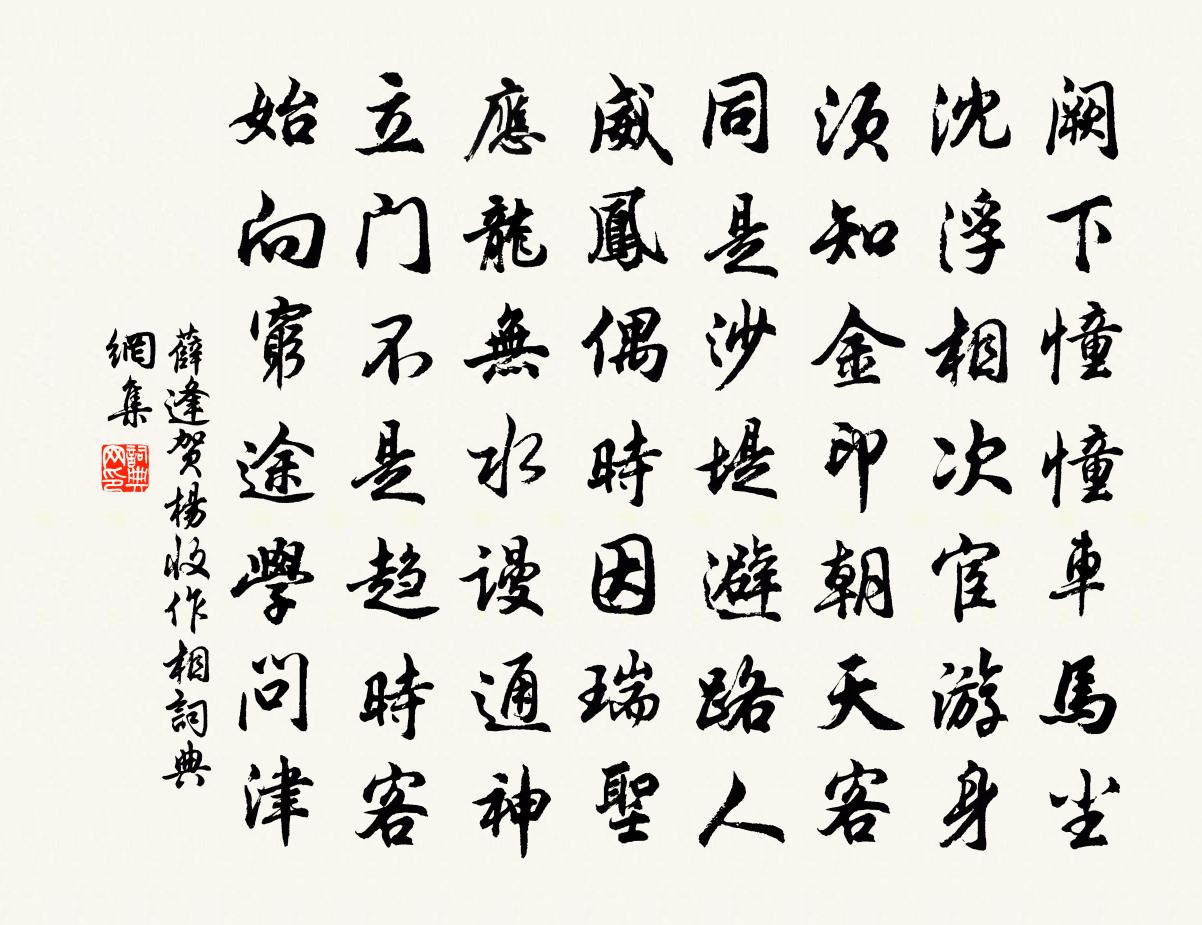 阙下憧憧車馬尘
沈浮相次宦游身
须知金印朝天客
同是沙堤避路人
威鳳偶時因瑞聖
應龍無水谩通神
立门不是趋時客
始向窮途學问津
薛逢贺楊收作相詞典
網集
詞典
网印